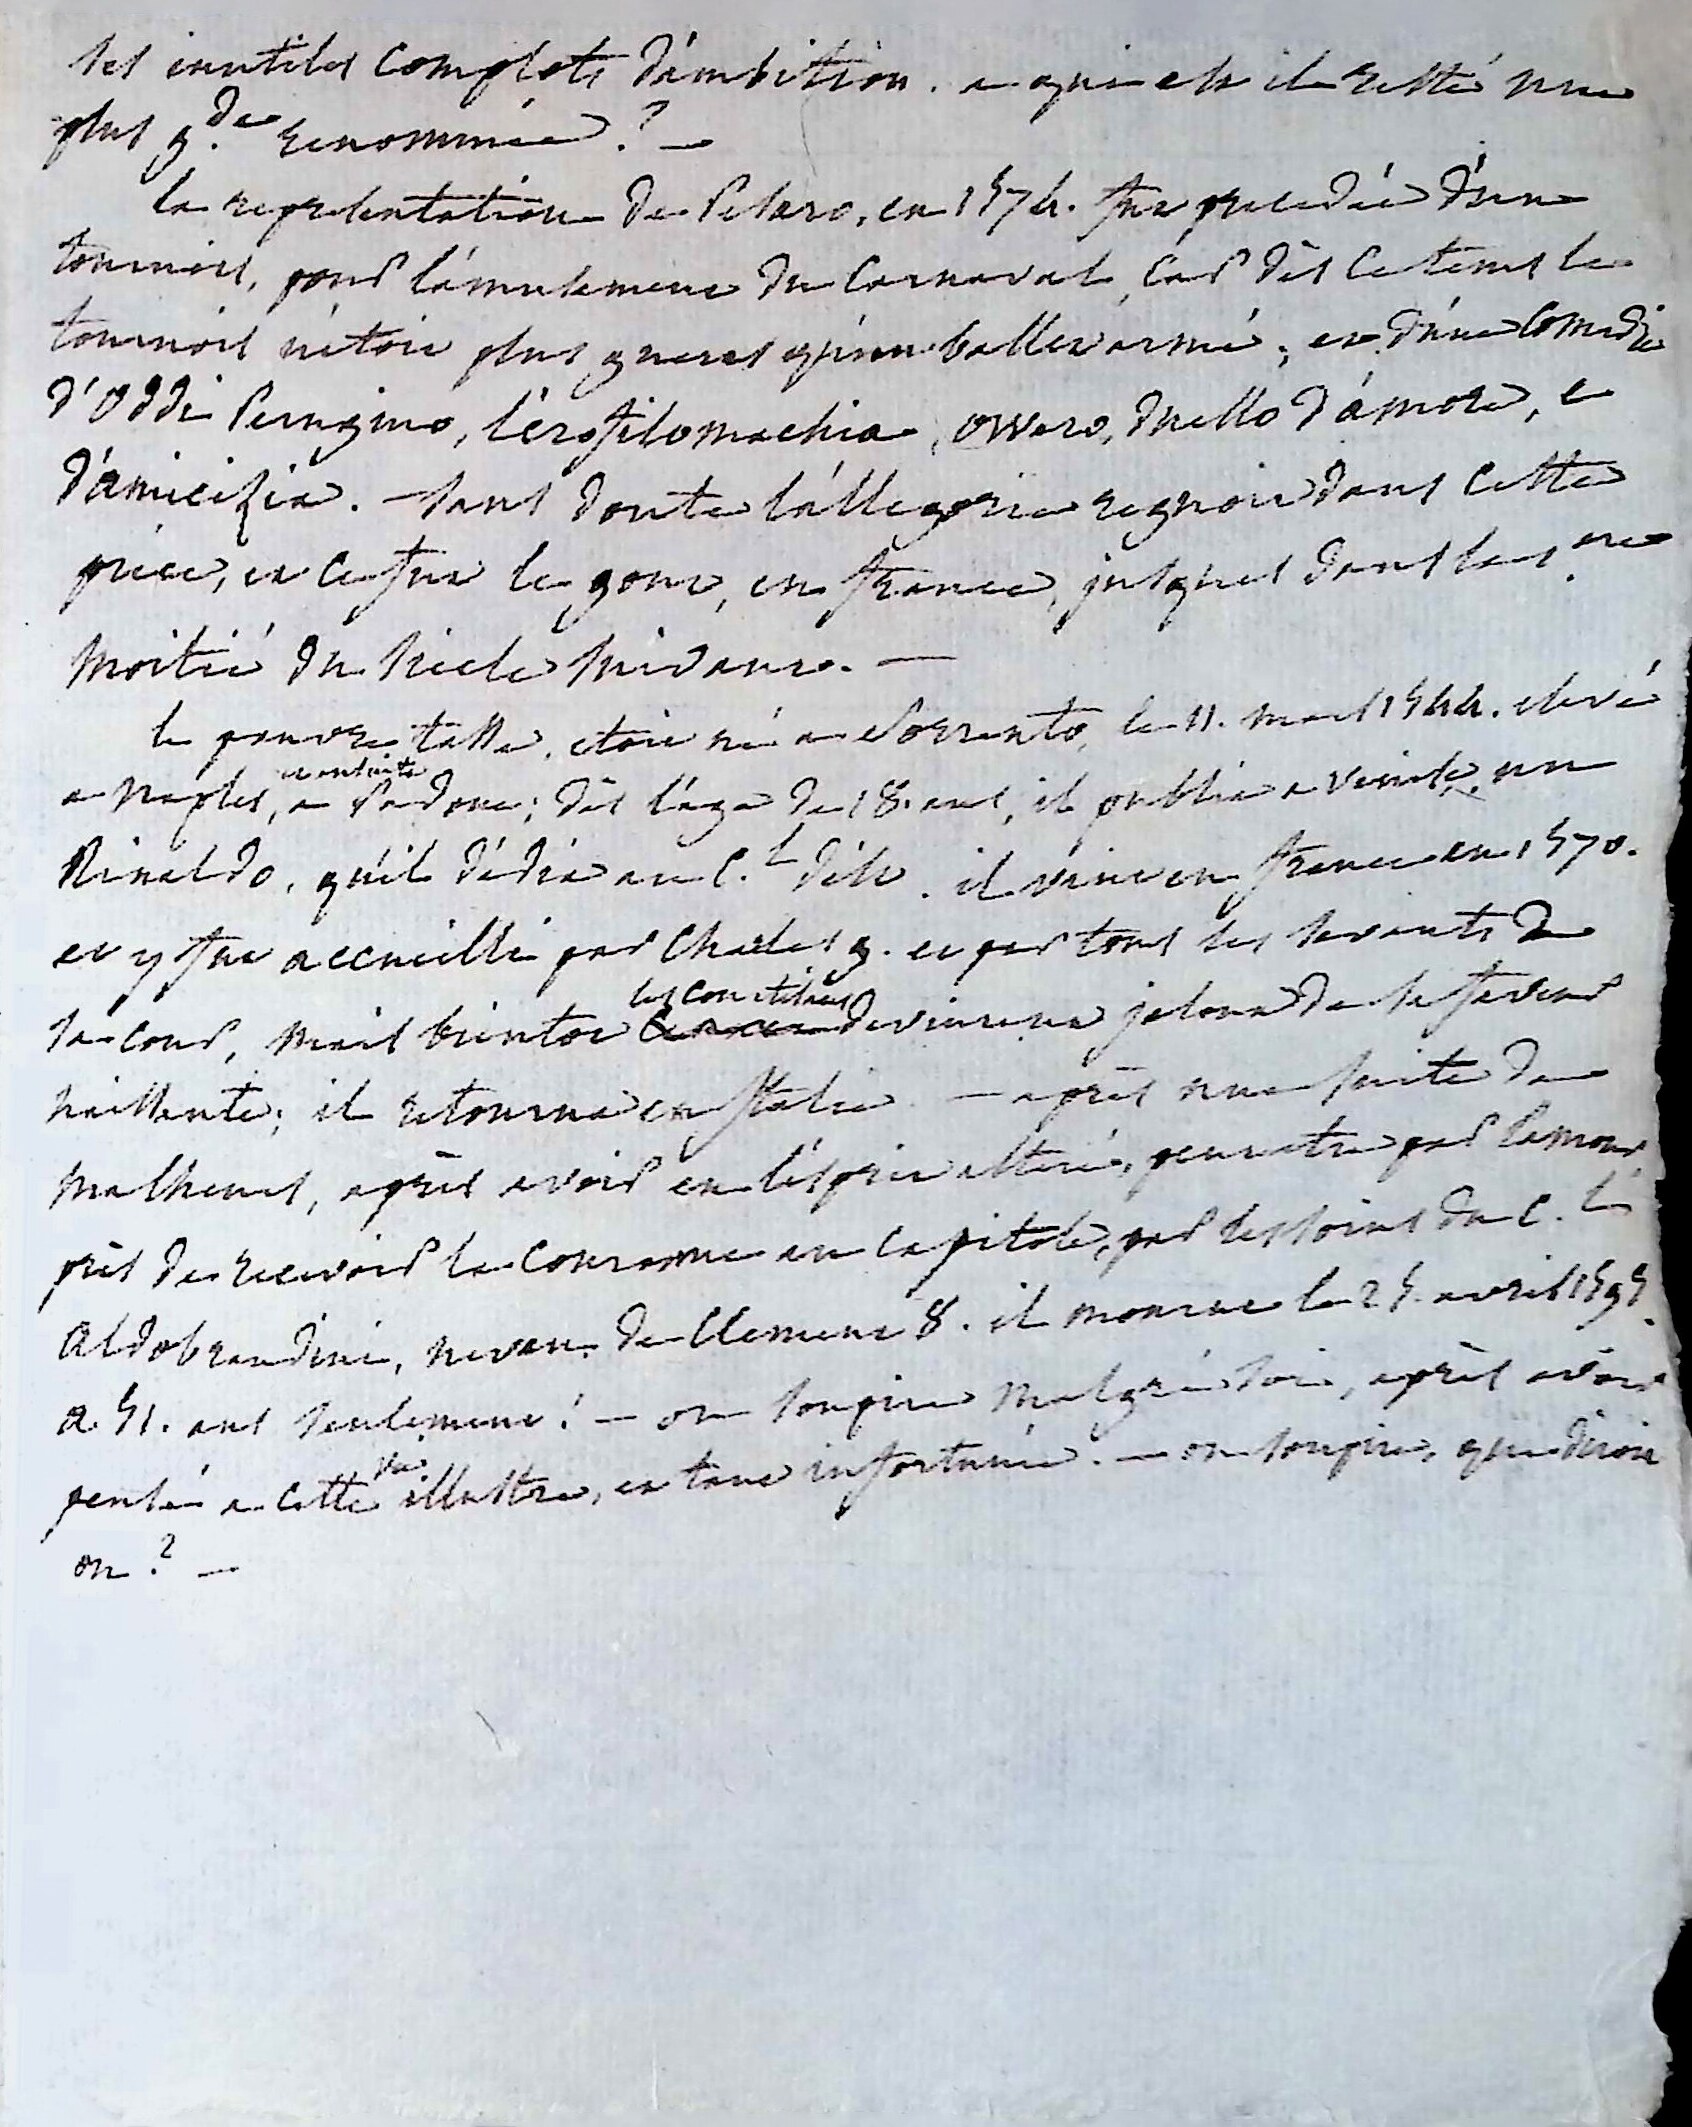 ses inutiles complots d'ambition. a qui est il resté une
plus g.de renommée ? —
la representation de Pesaro, en 1574. fut precedée d'un
tournois, pour l'amusement du Carnaval, car dès ce tems le
tournois n'etoit plus gueres qu'un ballet armé ; et d'une comedie
d'Oddi Perugino, l'erofilomachia, ovvero, duello d'amore, e
d'amicizia. — sans doute l'allegorie regnoit dans cette
piece, et ce fut le gout, en france, jusques dans la 1.ere
moitié du siecle suivant. —
le pauvre tasse, etoit né a Sorrento, le 11. mars 1544. elevé
a Naples, et ensuite a Padoue ; dès l'age de 18. ans, il publia a Venise, un
Rinaldo, qu'il dédia au C.l d'est. il vint en france en 1570.
et y fut accueilli par Charles 9. et par tous les savants de
sa cour, mais bientot les courtisans devinrent jaloux de sa faveur
naissante ; il retourna en Italie. — après une suite de
malheurs, après avoir eu l'esprit alteré, peut etre par l'amour,
près de recevoir la couronne au capitole, par les soins du C.l
Aldobrandini, neveu de Clement 8. il mourut le 25. avril 1595.
a 51. ans seulement ! — on soupire malgré soi, après avoir
pensé a cette vie illustre, et tant infortunée. — on soupire, que diroit
on ? —